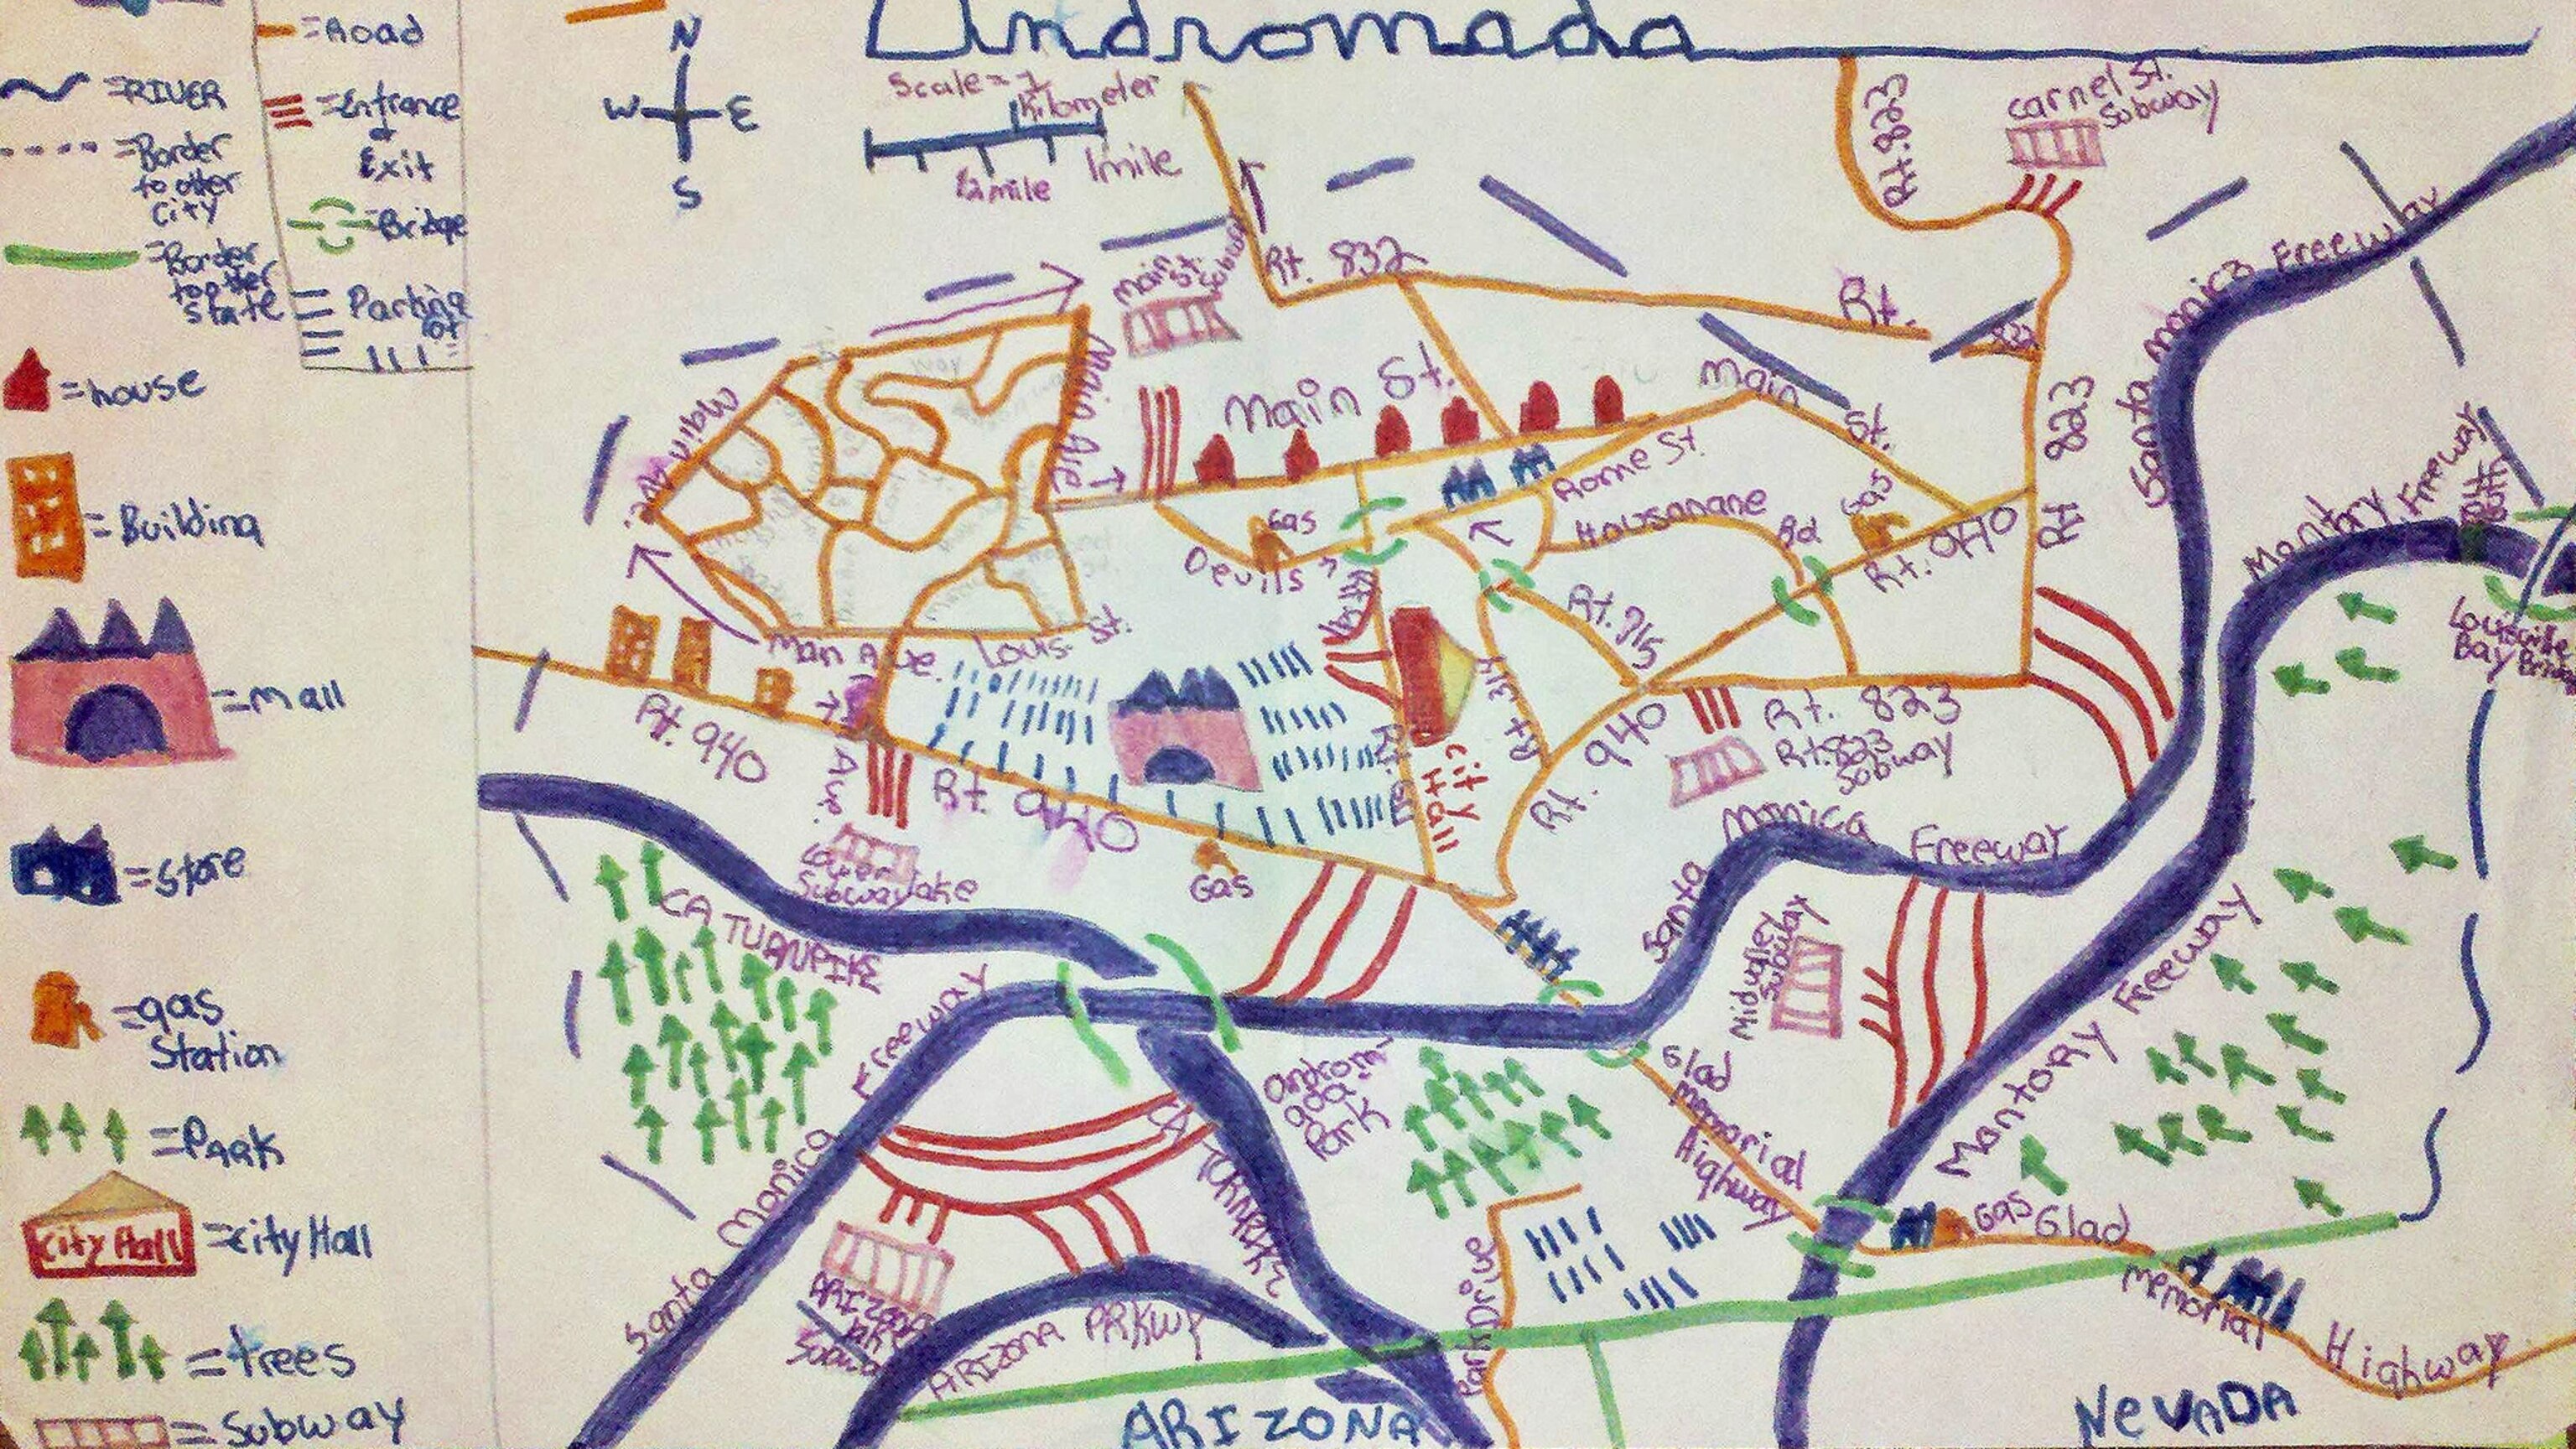 Andromada
=Road
=RIVER
=Entrance
&
Exit
=Border
to other
City
=Bridge
=Border
to other
State
Parking
lot
=house
=Building
=mall
=Store
=gas
Station
=PARK
City Hall
=city Hall
=trees
=Subway
N
W
E
S
Scale=
1
Kilometer
1/2 mile
1mile
Rt. 823
carnel St.
Subway
Main
St.
Subway
Rt. 832
Rt.
832
Santa Monica Freeway
Main Ave.
Main Ave
Main St.
Main
St.
823
Rt
Rome St.
Housanane
Rd
Gas
Gas
Devils
Rt. 940
Rt. 715
Mantory Freeway
Louisville
Bay Bridge
Man Ave.
Louis
St.
Rt. 940
Ave.
Rt. 940
City
Hall
Rt 314
Rt. 940
Rt. 823
Rt.823
Subway
Lower
Subway
lake
Gas
CA TURNPIKE
Santa Monica Freeway
Midvalley
Subway
Mantory Freeway
Santa Monica Freeway
Androm-
ada
Park
Glad
Memorial
Highway
CA TURNPIKE
Gas
Glad
Memorial Highway
Park Drive
ARIZONA
Subway
ARIZONA PRKWY
ARIZONA
NEVADA